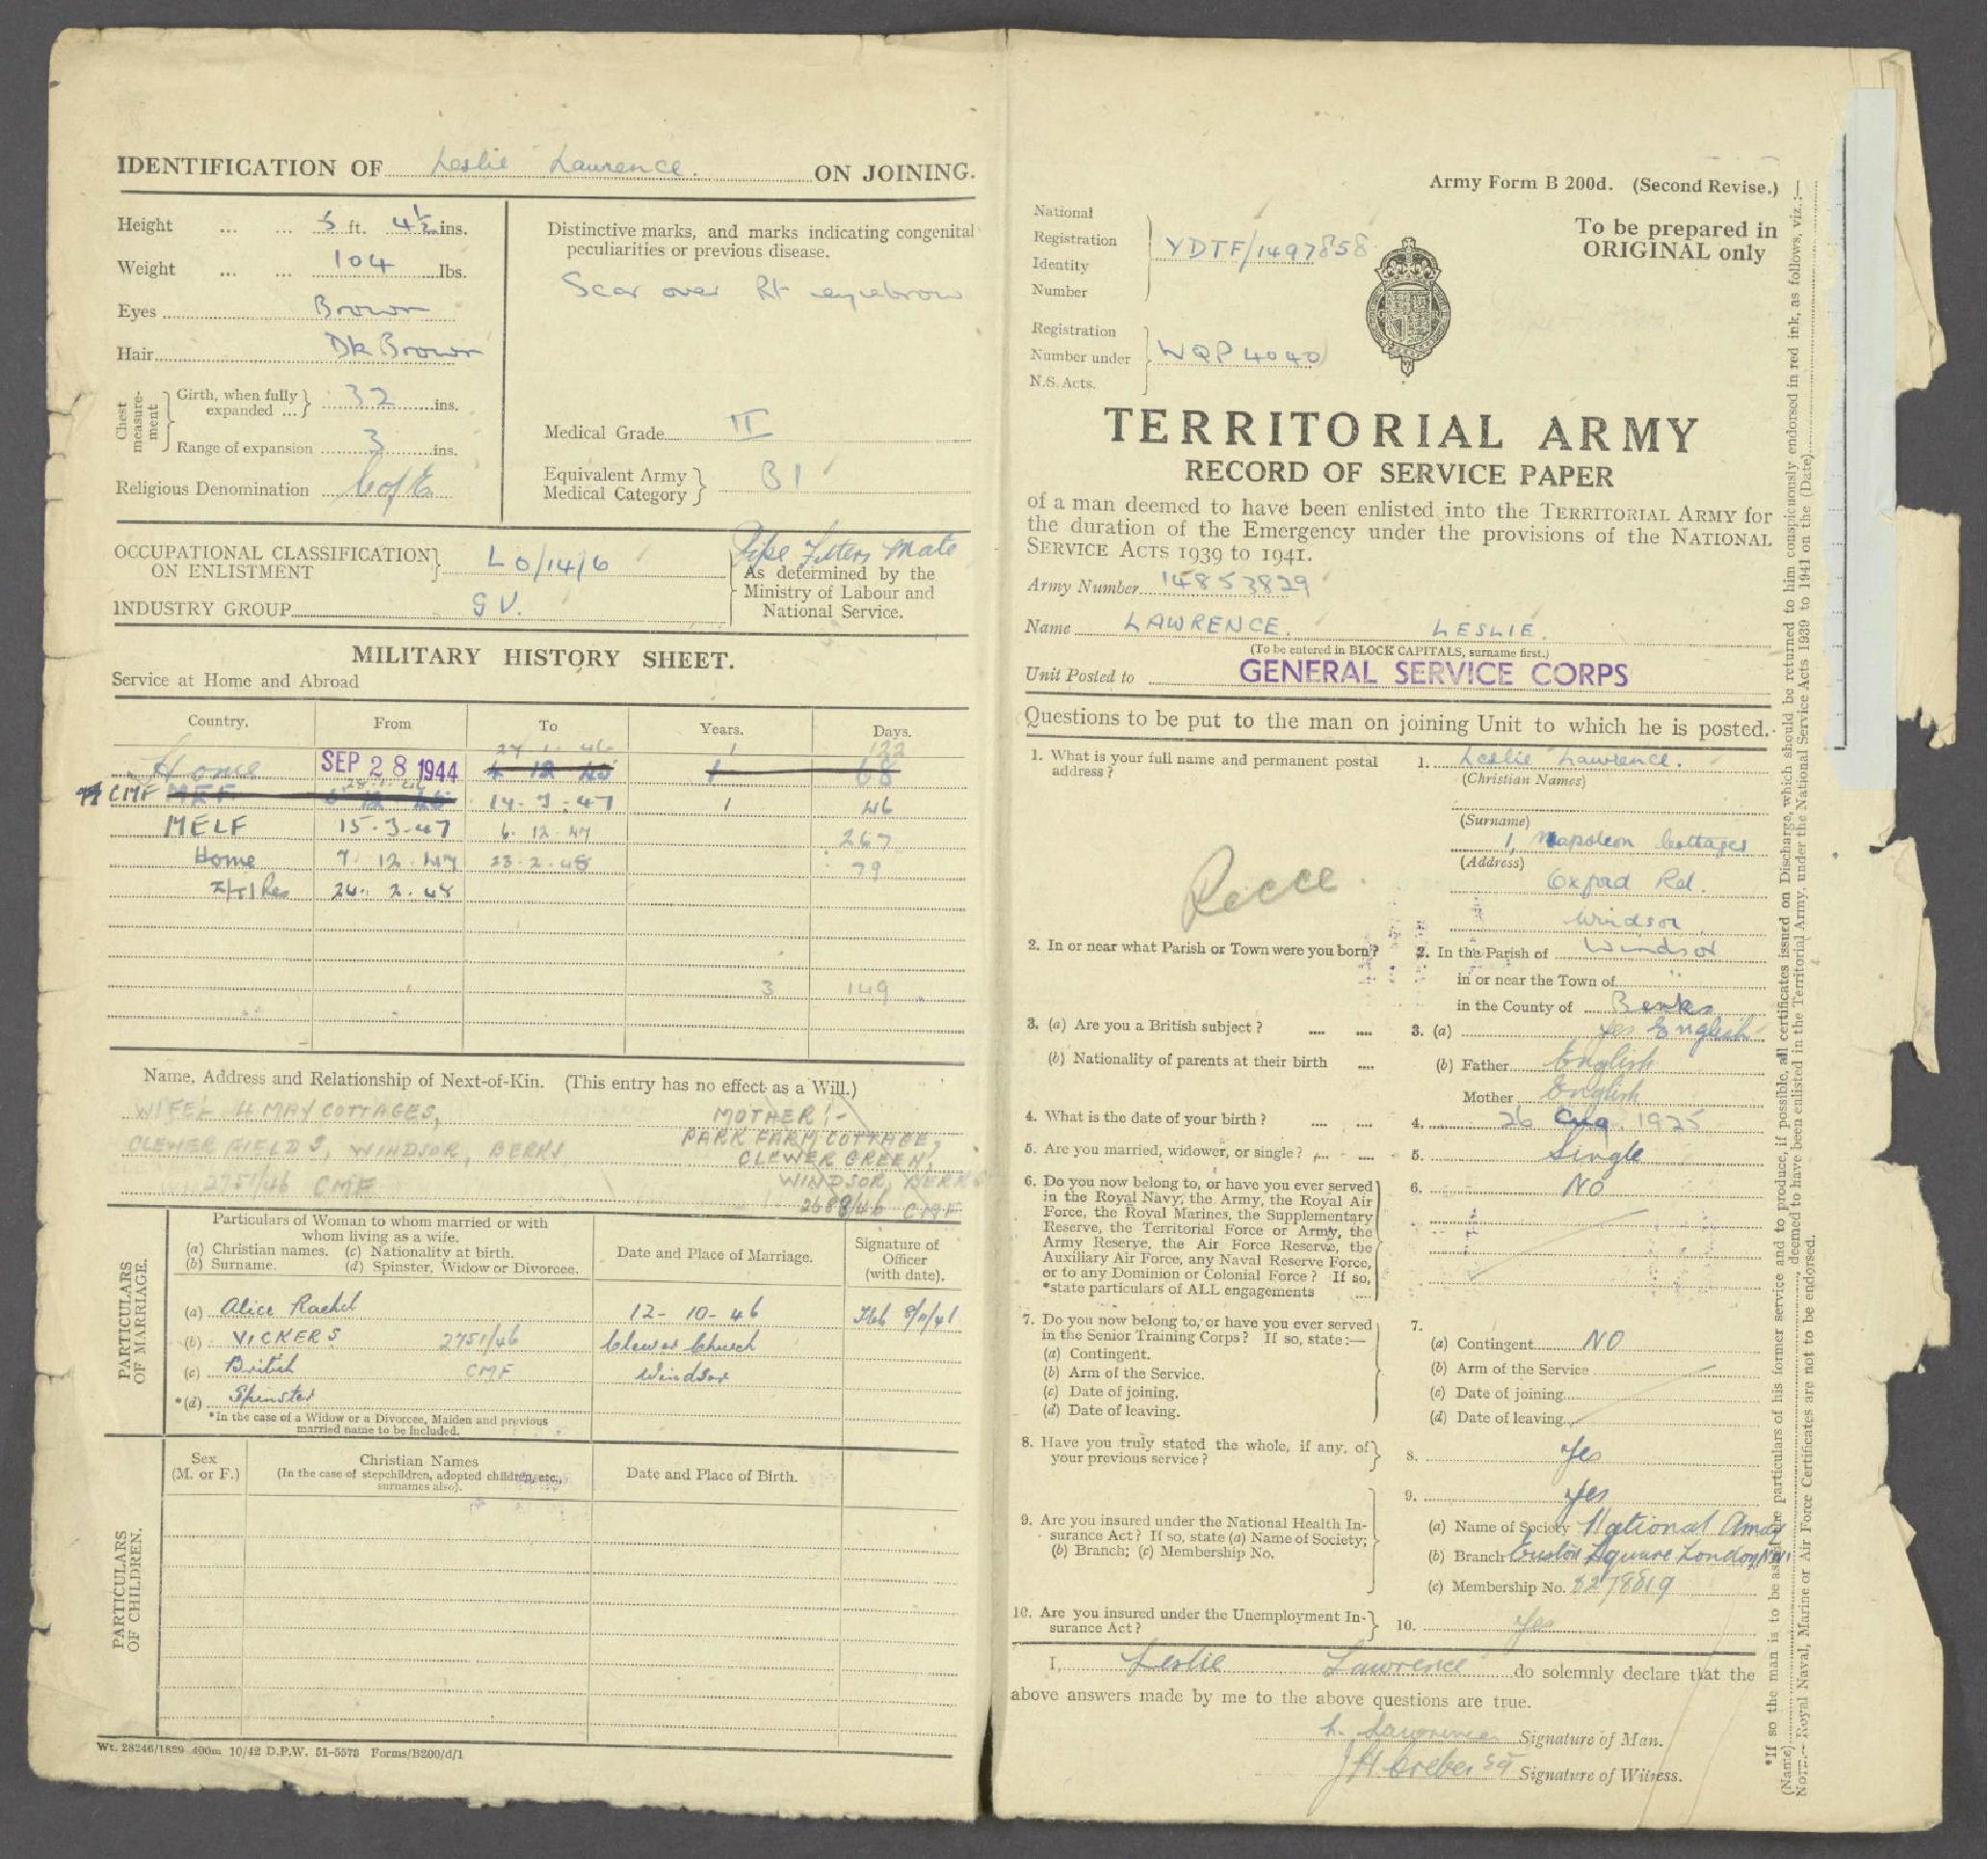 IDENTIFICATION OF Leslie Lawrence. ON JOINING.
Height ... ... 5 ft. 4½ ins.
Weight ... ... 104 lbs.
Eyes Brown
Hair Dk Brown
Chest measure-ment
Girth, when fully expanded ... 32 ins.
Range of expansion 3 ins.
Religious Denomination C of E
Distinctive marks, and marks indicating congenital
peculiarities or previous disease.
Scar over Rt eyebrow
Medical Grade II
Equivalent Army Medical Category B1
OCCUPATIONAL CLASSIFICATION ON ENLISTMENT LO/14/6
INDUSTRY GROUP GV.
Pipe Fitters Mate
As determined by the
Ministry of Labour and
National Service.
MILITARY HISTORY SHEET.
Service at Home and Abroad
Country. From To Years. Days.
Home SEP 28 1944 27.1.46 1 122
4 12 45 1 68
CMF MEF 28.1.46 14.3.47 1 46
MELF 15.3.47 6.12.47 267
Home 7.12.47 23.2.48 79
Res 24.2.48
3 149
Name, Address and Relationship of Next-of-Kin. (This entry has no effect as a Will.)
WIFE:- 4 MAY COTTAGES,
CLEWER FIELDS, WINDSOR, BERKS
2751/46 CMF
MOTHER:-
PARK FARM COTTAGE,
CLEWER GREEN,
WINDSOR, BERKS
2688/46 CMF
PARTICULARS OF MARRIAGE.
Particulars of Woman to whom married or with
whom living as a wife.
(a) Christian names. (c) Nationality at birth.
(b) Surname. (d) Spinster, Widow or Divorcee.
Date and Place of Marriage.
Signature of
Officer
(with date).
(a) Alice Rachel 12-10-46
(b) VICKERS 2751/46 Clewer Church
(c) British CMF Windsor
*(d) Spinster
*In the case of a Widow or a Divorcee, Maiden and previous
married name to be included.
PARTICULARS OF CHILDREN.
Sex
(M. or F.)
Christian Names
(In the case of stepchildren, adopted children, etc.,
surnames also).
Date and Place of Birth.
Wt. 28246/1829 400m 10/42 D.P.W. 51-5573 Forms/B200/d/1
Army Form B 200d. (Second Revise.)
To be prepared in
ORIGINAL only
National
Registration
Identity
Number
YDTF/1497858
Registration
Number under
N.S. Acts.
WQP 4040
TERRITORIAL ARMY
RECORD OF SERVICE PAPER
of a man deemed to have been enlisted into the TERRITORIAL ARMY for
the duration of the Emergency under the provisions of the NATIONAL
SERVICE ACTS 1939 to 1941.
Army Number 14853829
Name LAWRENCE. LESLIE.
(To be entered in BLOCK CAPITALS, surname first.)
Unit Posted to GENERAL SERVICE CORPS
Questions to be put to the man on joining Unit to which he is posted.
1. What is your full name and permanent postal
address?
1. Leslie Lawrence.
(Christian Names)
(Surname)
1, Napoleon Cottages
(Address)
Oxford Rd.
Windsor
Recce
2. In or near what Parish or Town were you born?
2. In the Parish of Windsor
in or near the Town of "
in the County of Berks
3. (a) Are you a British subject? .... ....
3. (a) Yes English
(b) Nationality of parents at their birth ....
(b) Father English
Mother English
4. What is the date of your birth? .... ....
4. 26 Aug. 1925
5. Are you married, widower, or single? .... ....
5. Single
6. Do you now belong to, or have you ever served
in the Royal Navy, the Army, the Royal Air
Force, the Royal Marines, the Supplementary
Reserve, the Territorial Force or Army, the
Army Reserve, the Air Force Reserve, the
Auxiliary Air Force, any Naval Reserve Force,
or to any Dominion or Colonial Force? If so,
*state particulars of ALL engagements ....
6. NO
7. Do you now belong to, or have you ever served
in the Senior Training Corps? If so, state:—
(a) Contingent.
(b) Arm of the Service.
(c) Date of joining.
(d) Date of leaving.
7.
(a) Contingent NO
(b) Arm of the Service
(c) Date of joining
(d) Date of leaving
8. Have you truly stated the whole, if any, of
your previous service?
8. Yes
9. Are you insured under the National Health In-
surance Act? If so, state (a) Name of Society;
(b) Branch; (c) Membership No.
9. Yes
(a) Name of Society National Amal
(b) Branch Euston Square London NW1
(c) Membership No. 8278819
10. Are you insured under the Unemployment In-
surance Act?
10. Yes
I, Leslie Lawrence do solemnly declare that the
above answers made by me to the above questions are true.
L. Lawrence Signature of Man.
Signature of Witness.
*If so the man is to be asked the particulars of his former service and to produce, if possible, all certificates issued on Discharge, which should be returned to him conspicuously endorsed in red ink, as follows, viz.:—
(Name) deemed to have been enlisted in the Territorial Army, under the National Service Acts 1939 to 1941 on the (Date)
NOTE.—Royal Naval, Marine or Air Force Certificates are not to be endorsed.